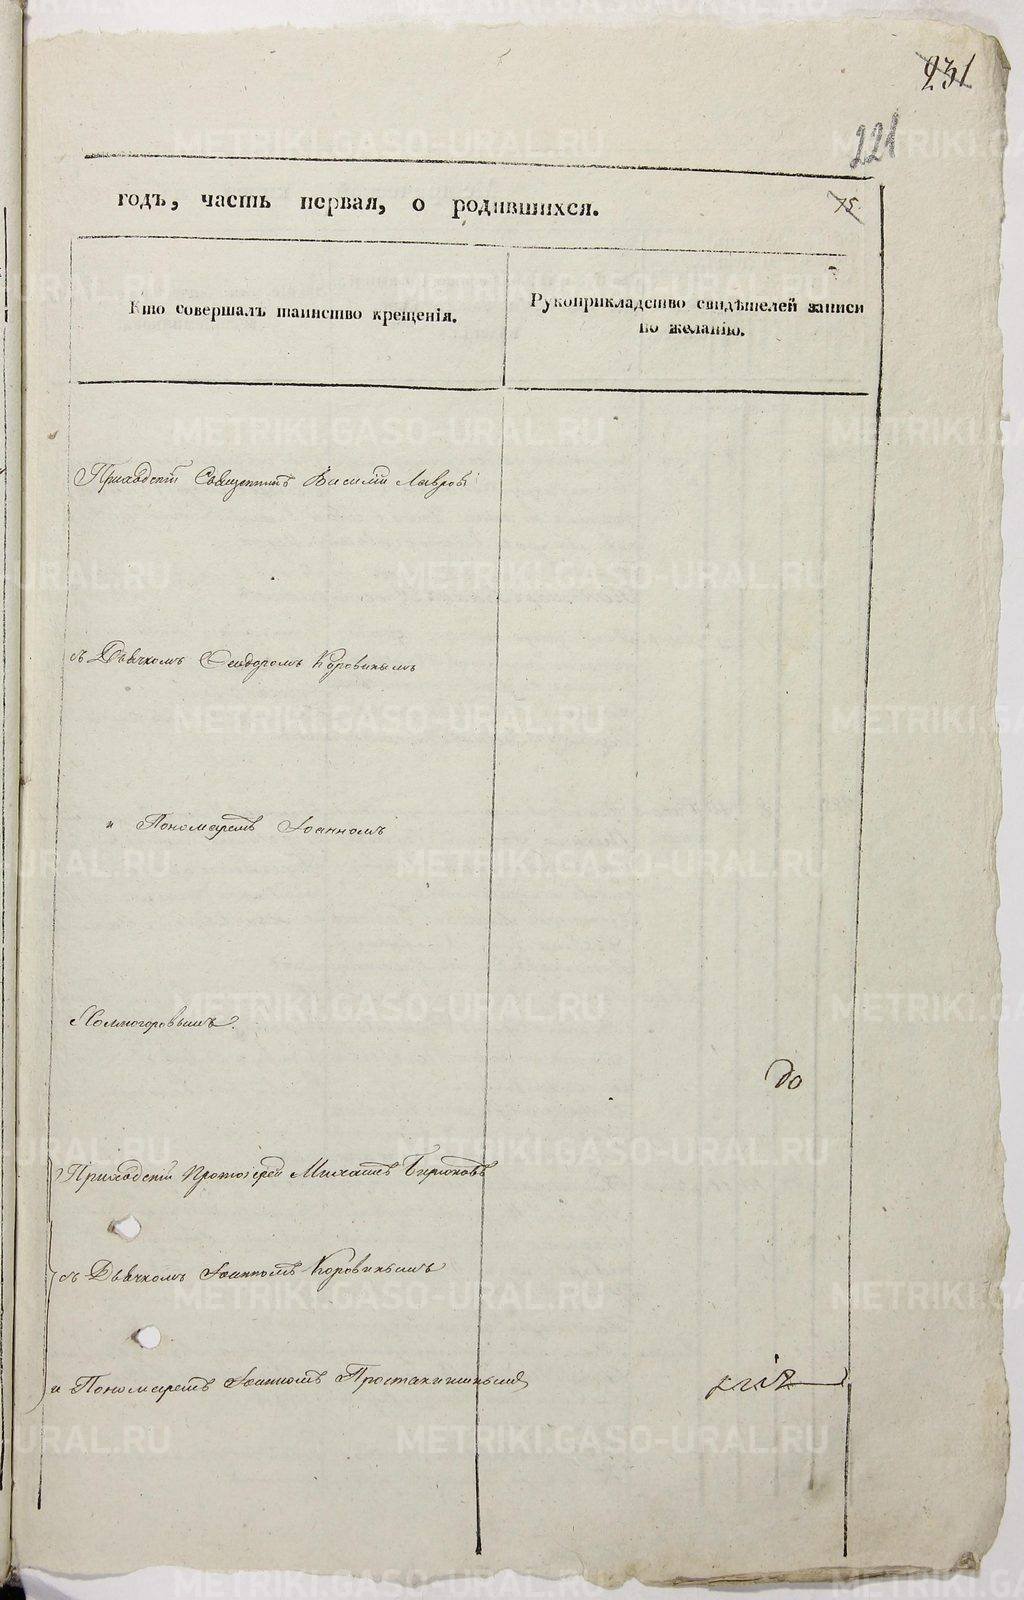 231
221
годъ, часть первая, о родившихся.
75
Кто совершалъ таинство крещенія.
Рукоприкладство свидѣтелей записи
по желанію.
Приходскій Священникъ Василій Лавровъ
съ Дьячкомъ Ѳеодоромъ Коровинымъ
и Пономаремъ Іоанномъ
Холмогоровымъ.
до
Приходскій Протоіерей Михаилъ Бирюковъ
съ Дьячкомъ Іоанномъ Коровинымъ
и Пономаремъ Іоанномъ
METRIKI.GASO-URAL.RU